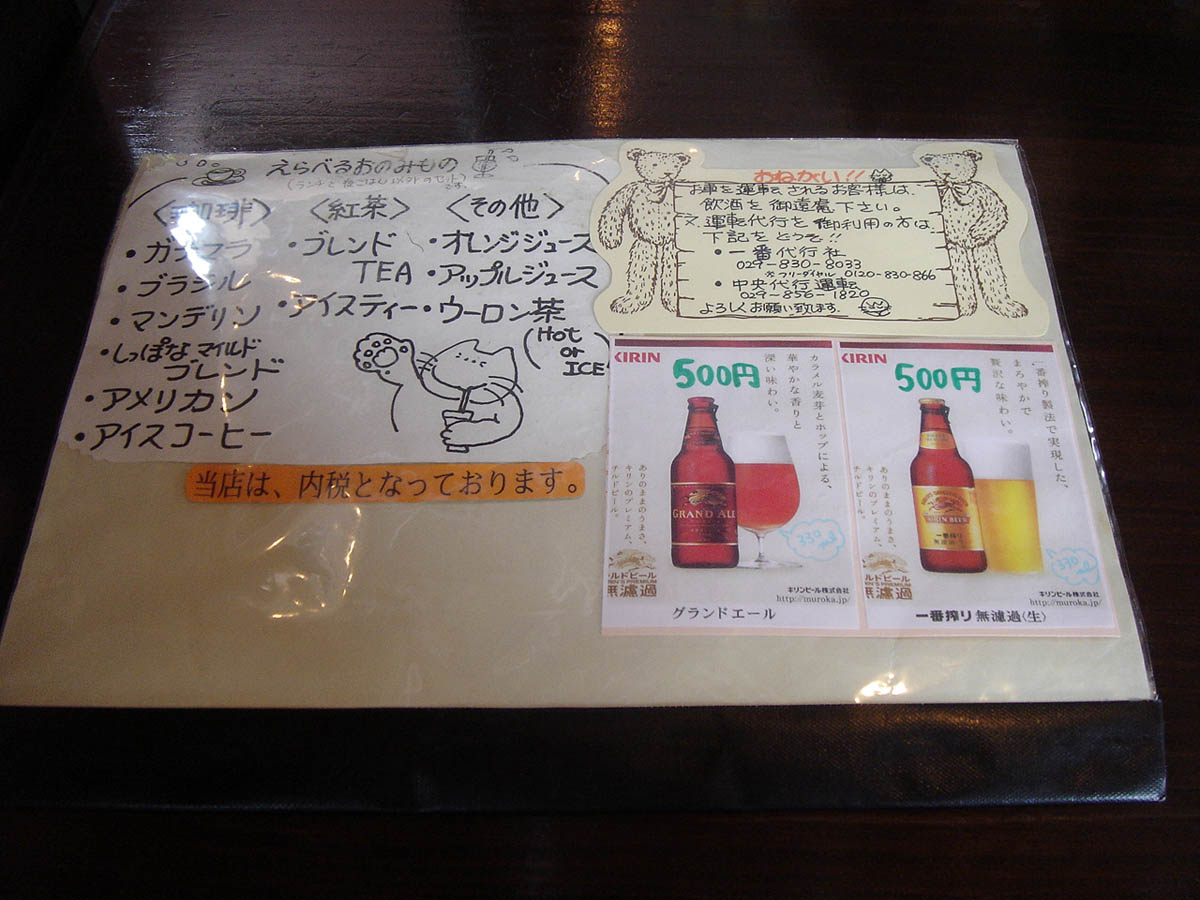 えらべるおのみもの
〈珈琲〉
・ガテマラ
・ブラジル
・マンデリン
・しっぽなマイルド
ブレンド
・アメリカン
・アイスコーヒー
〈紅茶〉
・ブレンド
TEA
・アイスティー
〈その他〉
・オレンジジュース
・アップルジュース
・ウーロン茶
(Hot
or
ICE)
当店は、内税となっております。
おねがい!!
お車を運転されるお客様は、
飲酒を御遠慮下さい。
又、運転代行を御利用の方は
下記をどうぞ!!
・一番代行社
029-830-8033
フリーダイヤル 0120-830-866
・中央代行運転
029-856-1820
よろしくお願い致します。
KIRIN
500円
カラメル麦芽とホップによる、
華やかな香りと
深い味わい。
ありのままのうまさ、
キリンのプレミアム、
チルドビール。
GRAND ALE
330
ml
ルドビール
無濾過
キリンビール株式会社
http://muroka.jp/
グランドエール
KIRIN
500円
一番搾り製法で実現した、
まろやかで
贅沢な味わい。
ありのままのうまさ、
キリンのプレミアム、
チルドビール。
KIRIN BEER
一番搾り
無濾過
330
ml
ルドビール
無濾過
キリンビール株式会社
http://muroka.jp/
一番搾り 無濾過(生)